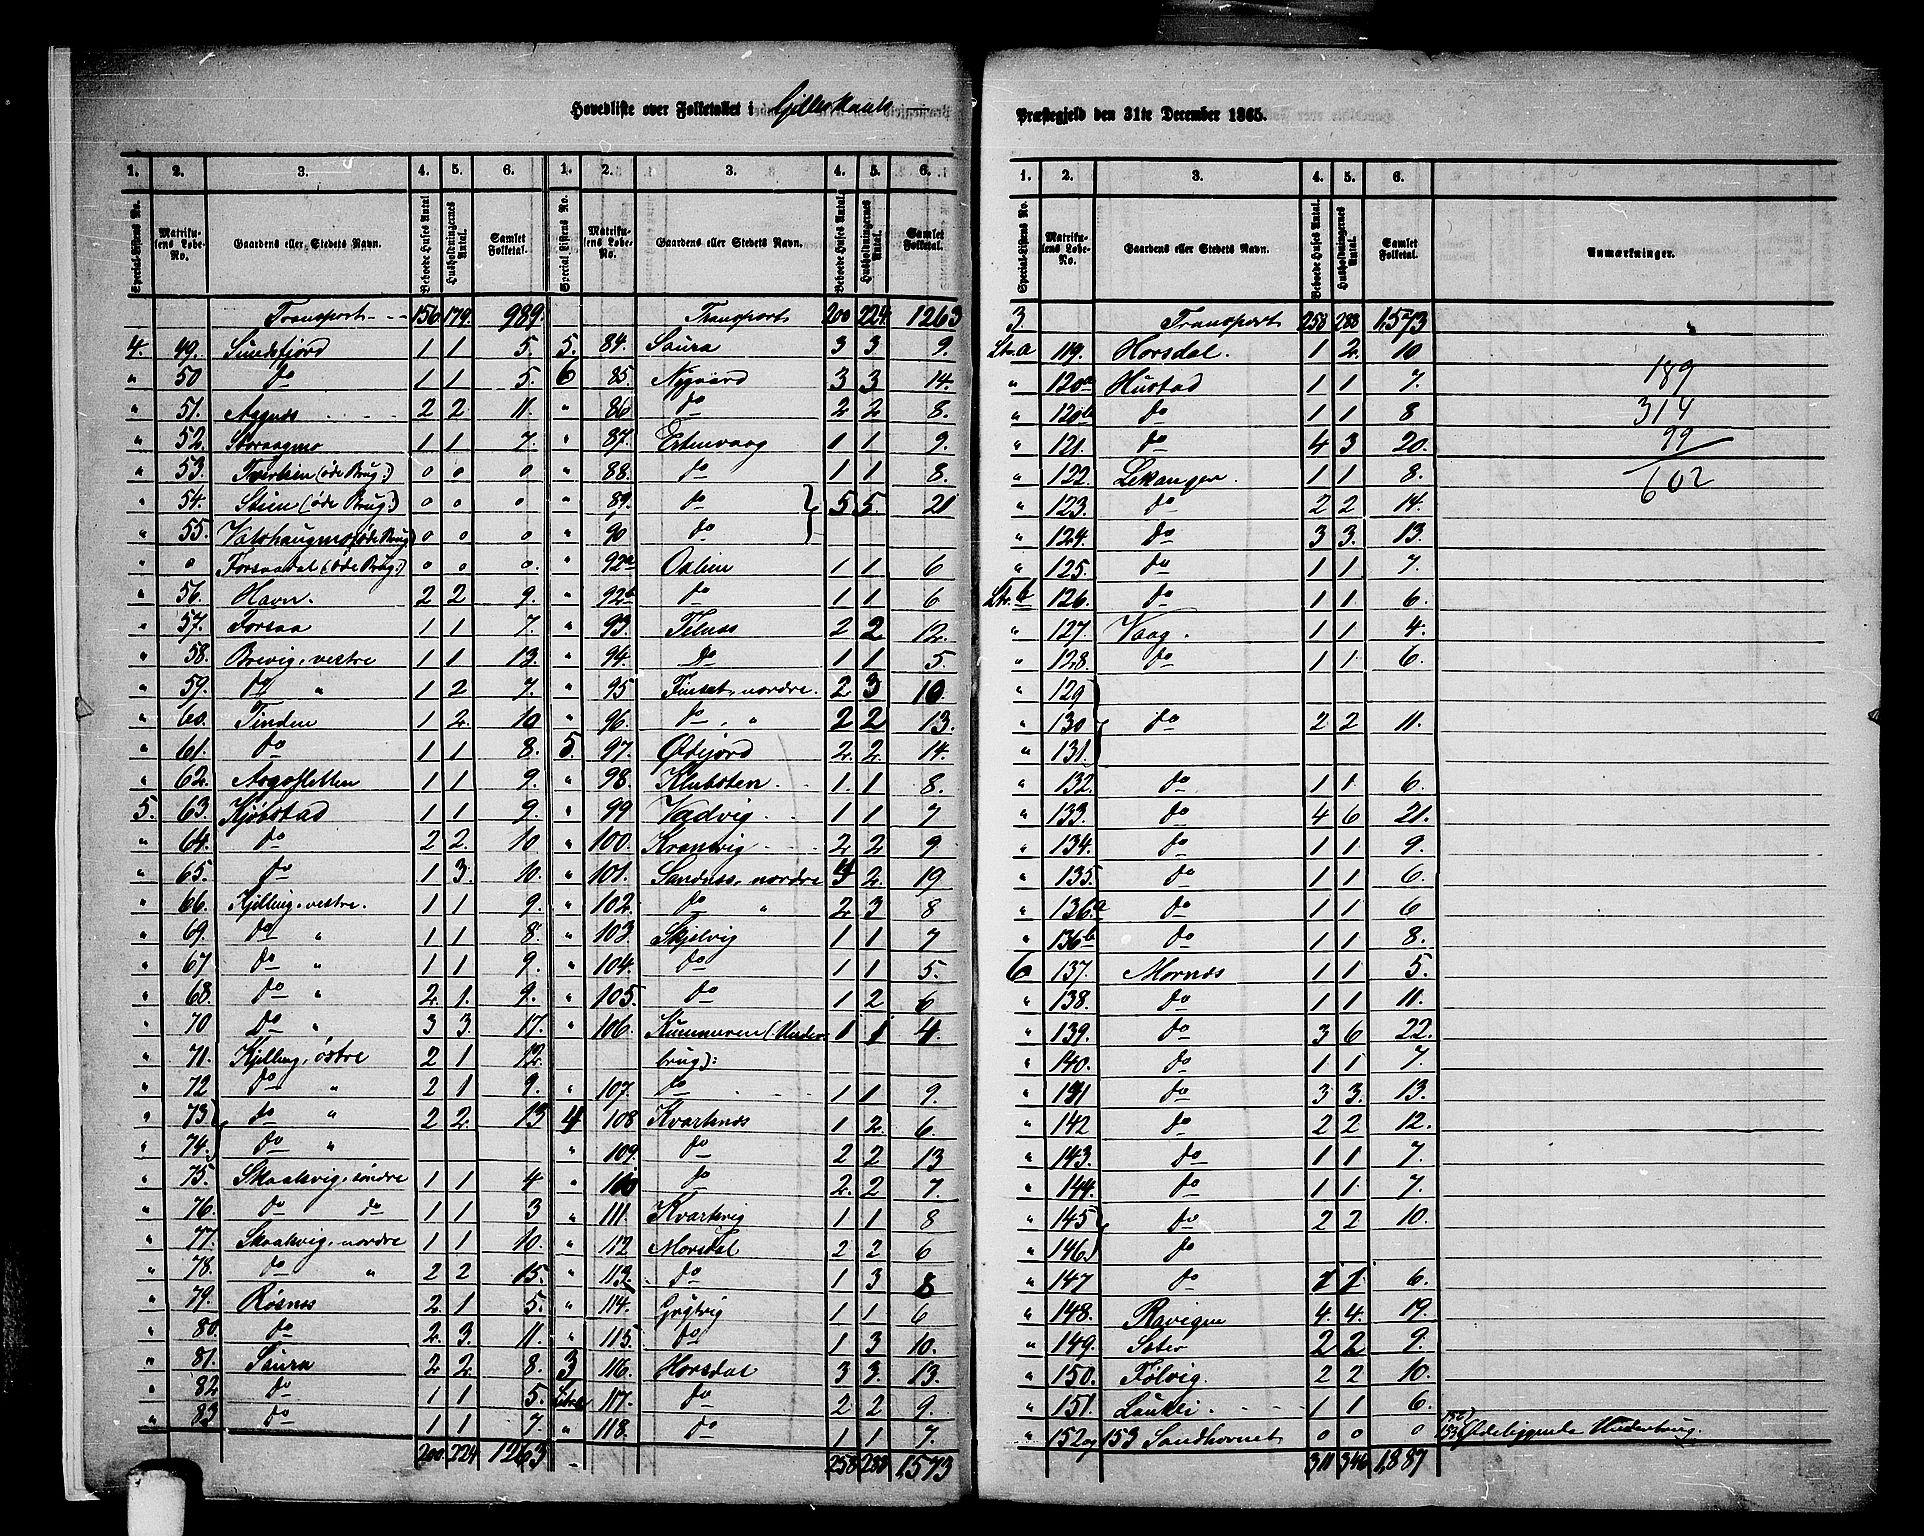 Hovedliste over Folketallet i Gillerskaals
Præstegjeld den 31te December 1865.
1. 2. 3. 4. 5. 6. 1. 2. 3. 4. 5. 6.
Special-Listens No. Matrikulens Løbe-No. Gaardens eller Stedets Navn. Beboede Huses Antal Husholdningernes Antal. Samlet Folketal. Special Listens No. Matrikulens Løbe-No. Gaardens eller Stedets Navn. Beboede Huses Antal. Husholdningernes Antal. Samlet Folketal.
Transport 156 179. 989
4. 49. Sundsfjord 1 1 5.
" 50 do 1 1 5.
" 51. Aagnæs 2 2 11.
" 52. Storaagmo 1 1 7.
" 53. (øde Brug:) 0 0 0
" 54. Stien (øde Brug:) 0 0 0
" 55. Vatshaugmo (øde Brug) 0 0 0
" 0 Forsaadal (øde Brug:) 0 0 0.
" 56. Havn. 2 2 9.
" 57. Forsaa 1 1 7.
" 58. Brevig, vestre 1 1 13.
" 59. do " 1 2 7.
" 60. Tinden 1 2. 10
" 61. do 1 1 8.
" 62. Aagesletten 1 1 9.
5. 63. Kjøbstad 1 1 9.
" 64. do 2 2. 10
" 65. do 1 3. 10.
" 66. Kjelling, vestre. 1 1 9.
" 69. do " 1 1 8.
" 67 do " 1 1 9.
" 68. do " 2. 1. 9.
" 70 do " 3 3. 17.
" 71. Kjelling, østre 2 1 12.
" 72 do " 2 1 9.
" 73 do " 2 2. 13
" 74. do "
" 75. Skaalsvig, søndre 1 1 4
" 76. do do 1 1 3
" 77. Skaalsvig, nordre 1 1 10.
" 78. do " 2 2 15.
" 79. Røsnæs 2. 1 5.
" 80. do 2. 3. 11.
" 81. Saura 2 2. 8.
" 82 do 1 1 5.
" 83 do 1 1 7.
200 224 1263
Transport 200 224. 1263
5. 84. Saura 3 3 9.
6 85. Nygaard 3 3 14.
" 86 do 2 2 8.
" 87. Ertenvaag 1 1 9.
" 88. do 1 1 8.
" 89. do 5 5. 21
" 90 do
" 92a Oslien 1 1 6
" 92b do 1 1 6
" 93. Telnæs 2 2 12.
" 94. do 1 1 5.
" 95 Finset, nordre. 2 3 10.
" 96. do, " 2 2 13.
5. 97. Ødejord 2. 2. 14.
" 98. Klubsten 1. 1 8.
" 99 Vadvig 1 1 7
" 100. Kranvig 2. 2 9
" 101. Sandnæs, nordre 4 2. 19
" 102. do " 2. 3 8
" 103. Skjelvig 1 1 7
" 104. do 1 1 5.
" 105. do 1 2 6
" 106. (Underbrug): 1 1 4.
" 107. do 1 1 9.
4 108 Kvartnæs 1 2. 6.
109. do 2 2 13
" 110 do 2. 2 7.
" 111 Kvartvig 1 1 8
" 112 Morsdal 2 2 6
" 113. do 1 3 8
" 114. Gryttvig 1 1 6
" 115. do 1 3 10.
3 116. Horsdal 3 3. 13.
Litra 117. do 2 2 9.
" 118. do 1 1 7.
258 288 1573
1. 2. 3. 4. 5. 6.
Special-Listens No. Matrikulens Løbe-No. Gaardens eller Stedets Navn. Beboede Huses Antal. Husholdningernes Antal. Samlet Folketal. Anmærkninger.
3. Transport 258 288 1573
Ltr. a 119. Horsdal. 1 2. 10
" 120a Hustad 1 1 7.
" 120b do 1 1 8
" 121. do 4 3 20.
" 122. Lekangen 1 1 8.
" 123. do 2 2 14.
" 124. do 3 3. 13.
" 125. do 1 1 7.
Ltr. b 126. do 1 1 6.
" 127. Vaag. 1 1 4.
" 128. do 1 1 6.
" 129
" 130 do 2 2 11.
" 131
" 132. do 1 1 6.
" 133. do 4 6 21.
" 134. do 1 1 9.
" 135. do 1 1 6.
" 136a do 1 1 6
" 136b do 1 1 8.
6 137. Mornæs 1 1 5.
" 138. do 1 1 11.
" 139. do 3 6 22.
" 140. do 1 1 7.
" 141 do 3 3. 13.
" 142 do 2 2 12.
" 143. do 1 1 7.
" 144. do 1 1 7.
" 145 do 2 2 10.
" 146 do
" 147 do 1 1. 6.
" 148. Ravigen 4. 4. 19.
" 149. Seter 2 2 9.
" 150. Følvig. 2 2 10.
" 151. Laukli 1 1 6.
" 152 og 153 Sandhornet 0 0 0
311 346 1,887
189
314
99
602
152
153 Ødeliggende Underbrug.